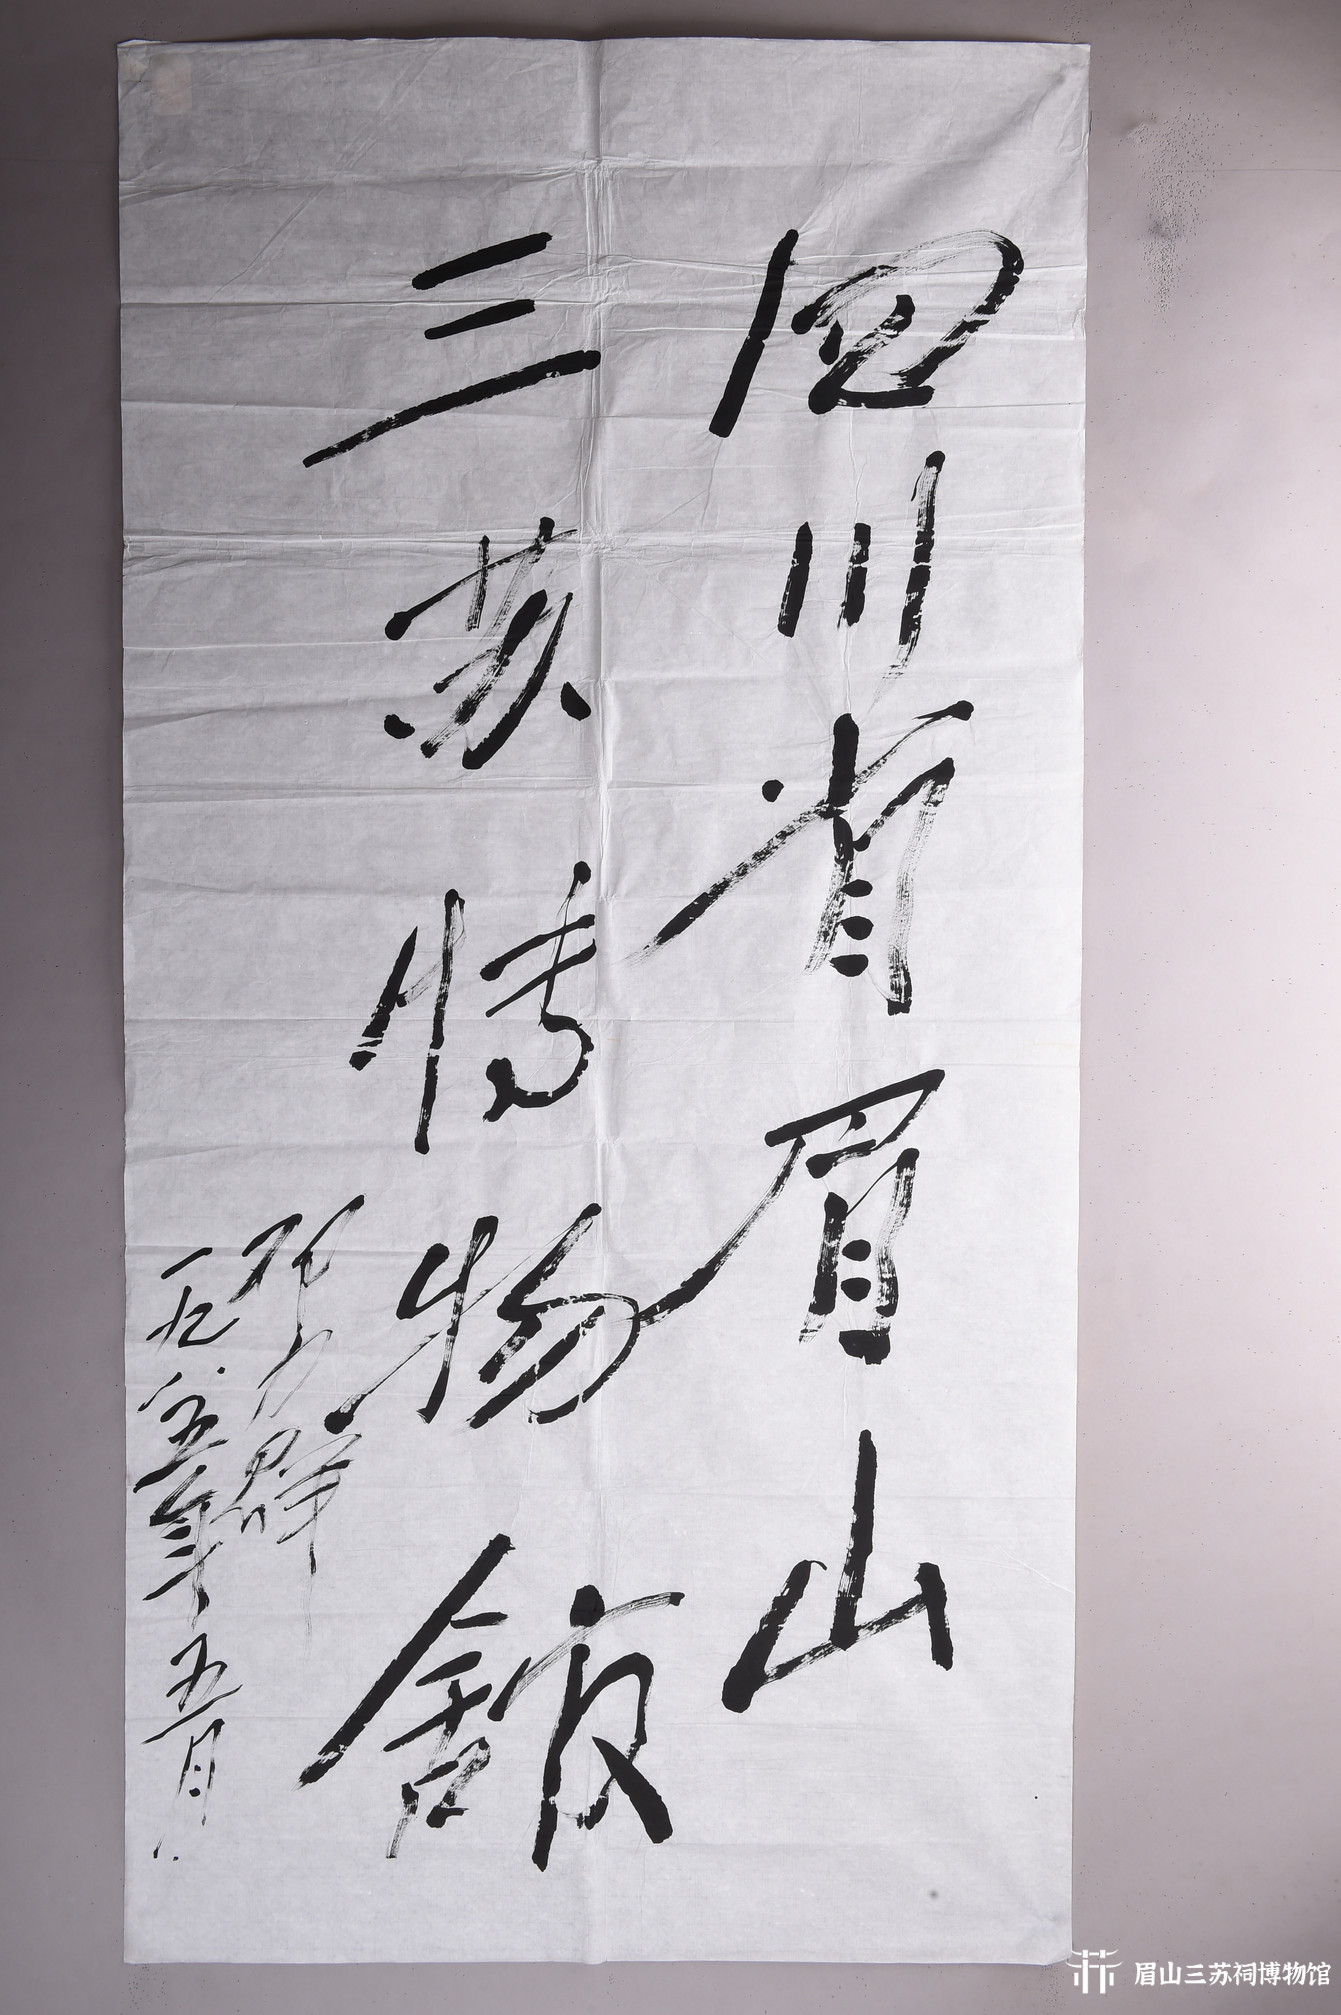 四川省眉山
三苏博物馆
邓力群
一九八五年五月
眉山三苏祠博物馆